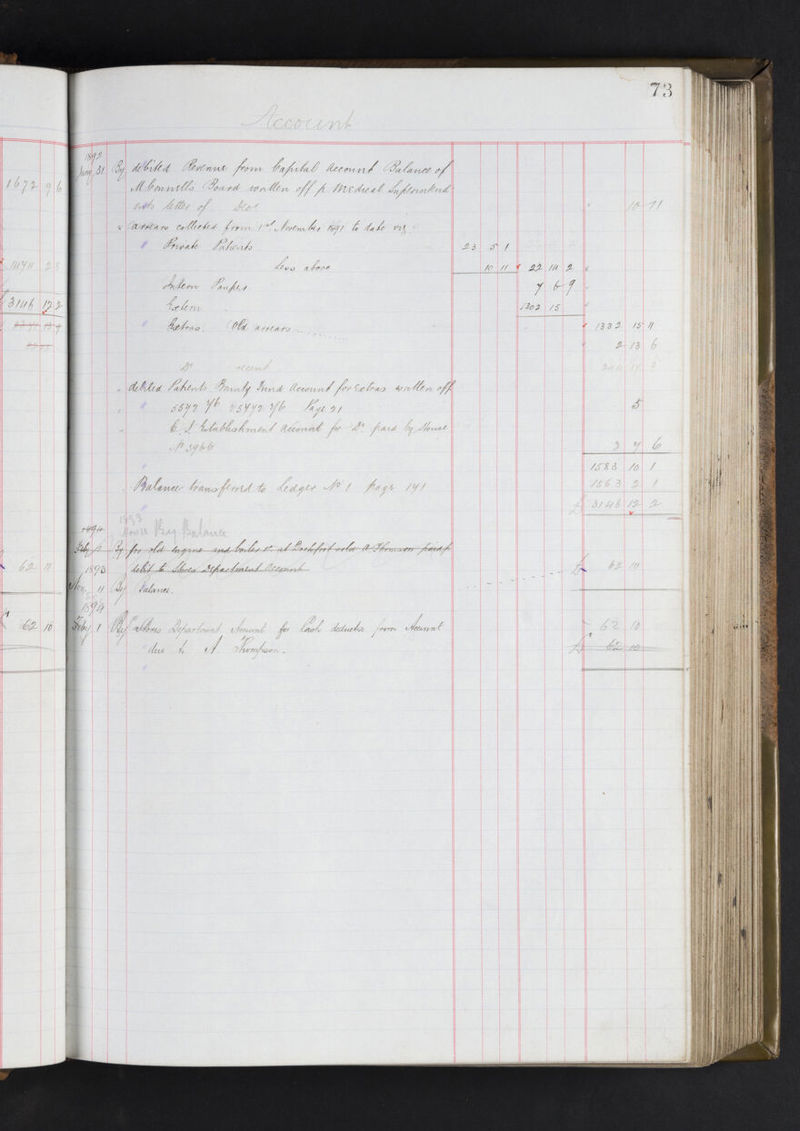 73
Account
1892
Jany 31 By debited Revenue from Capital Account Balance of
M. Connells Board written off p Medical Superintend
ents letter of 10 11
" arrears collected from 1st November 1891 to date viz
" Private Patients 23 5 1
Less above 10 11 22 14 2
Intern Paupers 7 6 9
Extern 1302 15
" Extras Old arrears 1332 15 11
2 13 6
Do recent
" debited Patients Bounty Fund Account for Extras written off
5
" 5572 7/6 Page 21
Establishment account for Do paid by House
No 3966 3 7 6
1583 10 1
Balance transferred to Ledger No 1 Page 141 1563 2 1
£ 3146 12 2
1893
Balance
1894
Feby 1 By for old engine and boiler &c at sold A Thomson paid p
debit to Stores Department Account £ 62 10
1893
11 By Balance
1894
Feby 1 By Stores Department Account for Cash deducted from Account 62 10
due to A Thompson £ 62 10
1672 9 6
3146 12 2
62 11
£ 62 10